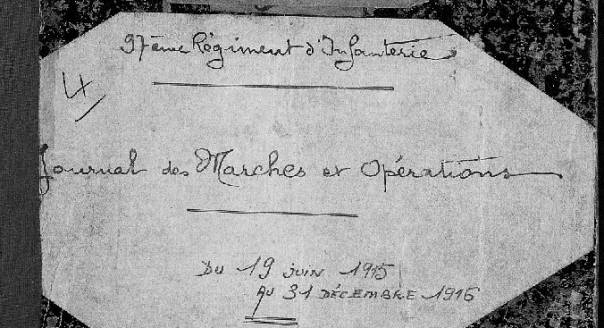 97ème Régiment d'Infanterie
4
Journal des Marches et Opérations
Du 19 juin 1915
au 31 décembre 1916